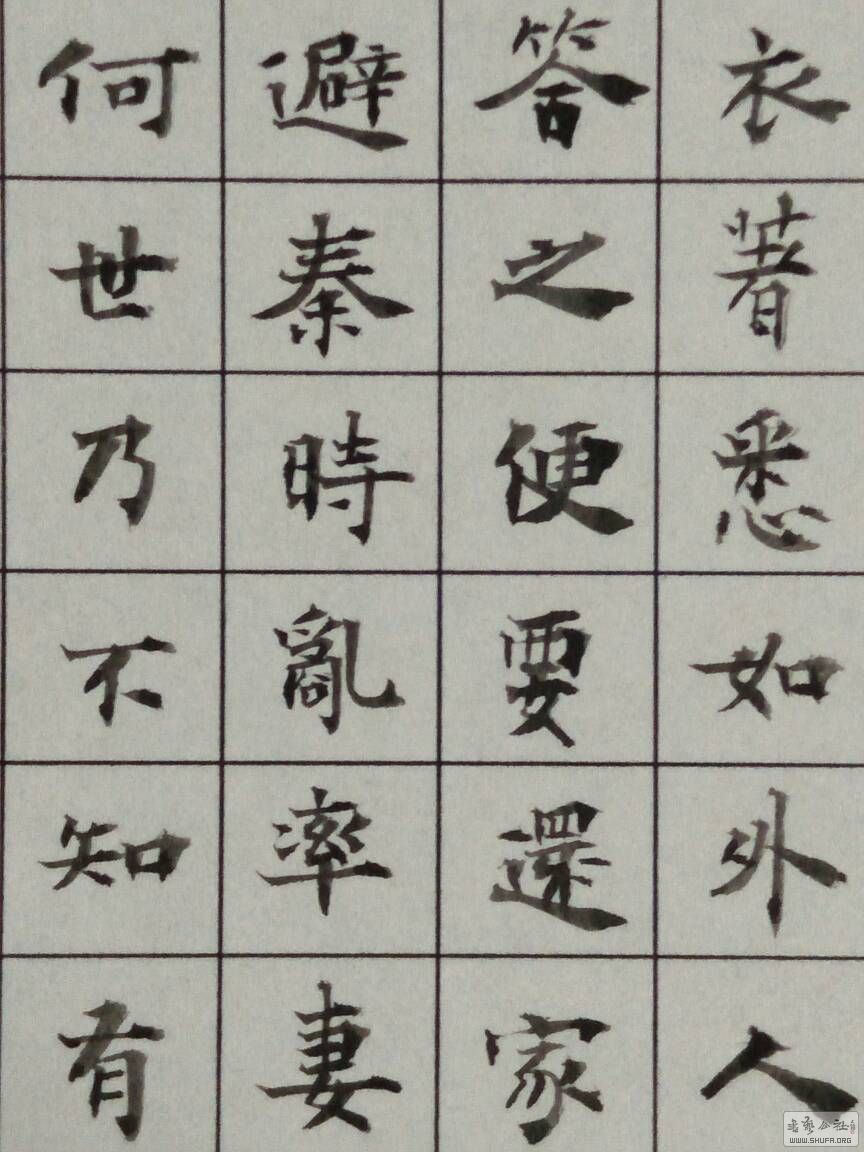 衣著悉如外人
答之便要還家
避秦時亂率妻
何世乃不知有
WWW.SHUFA.ORG